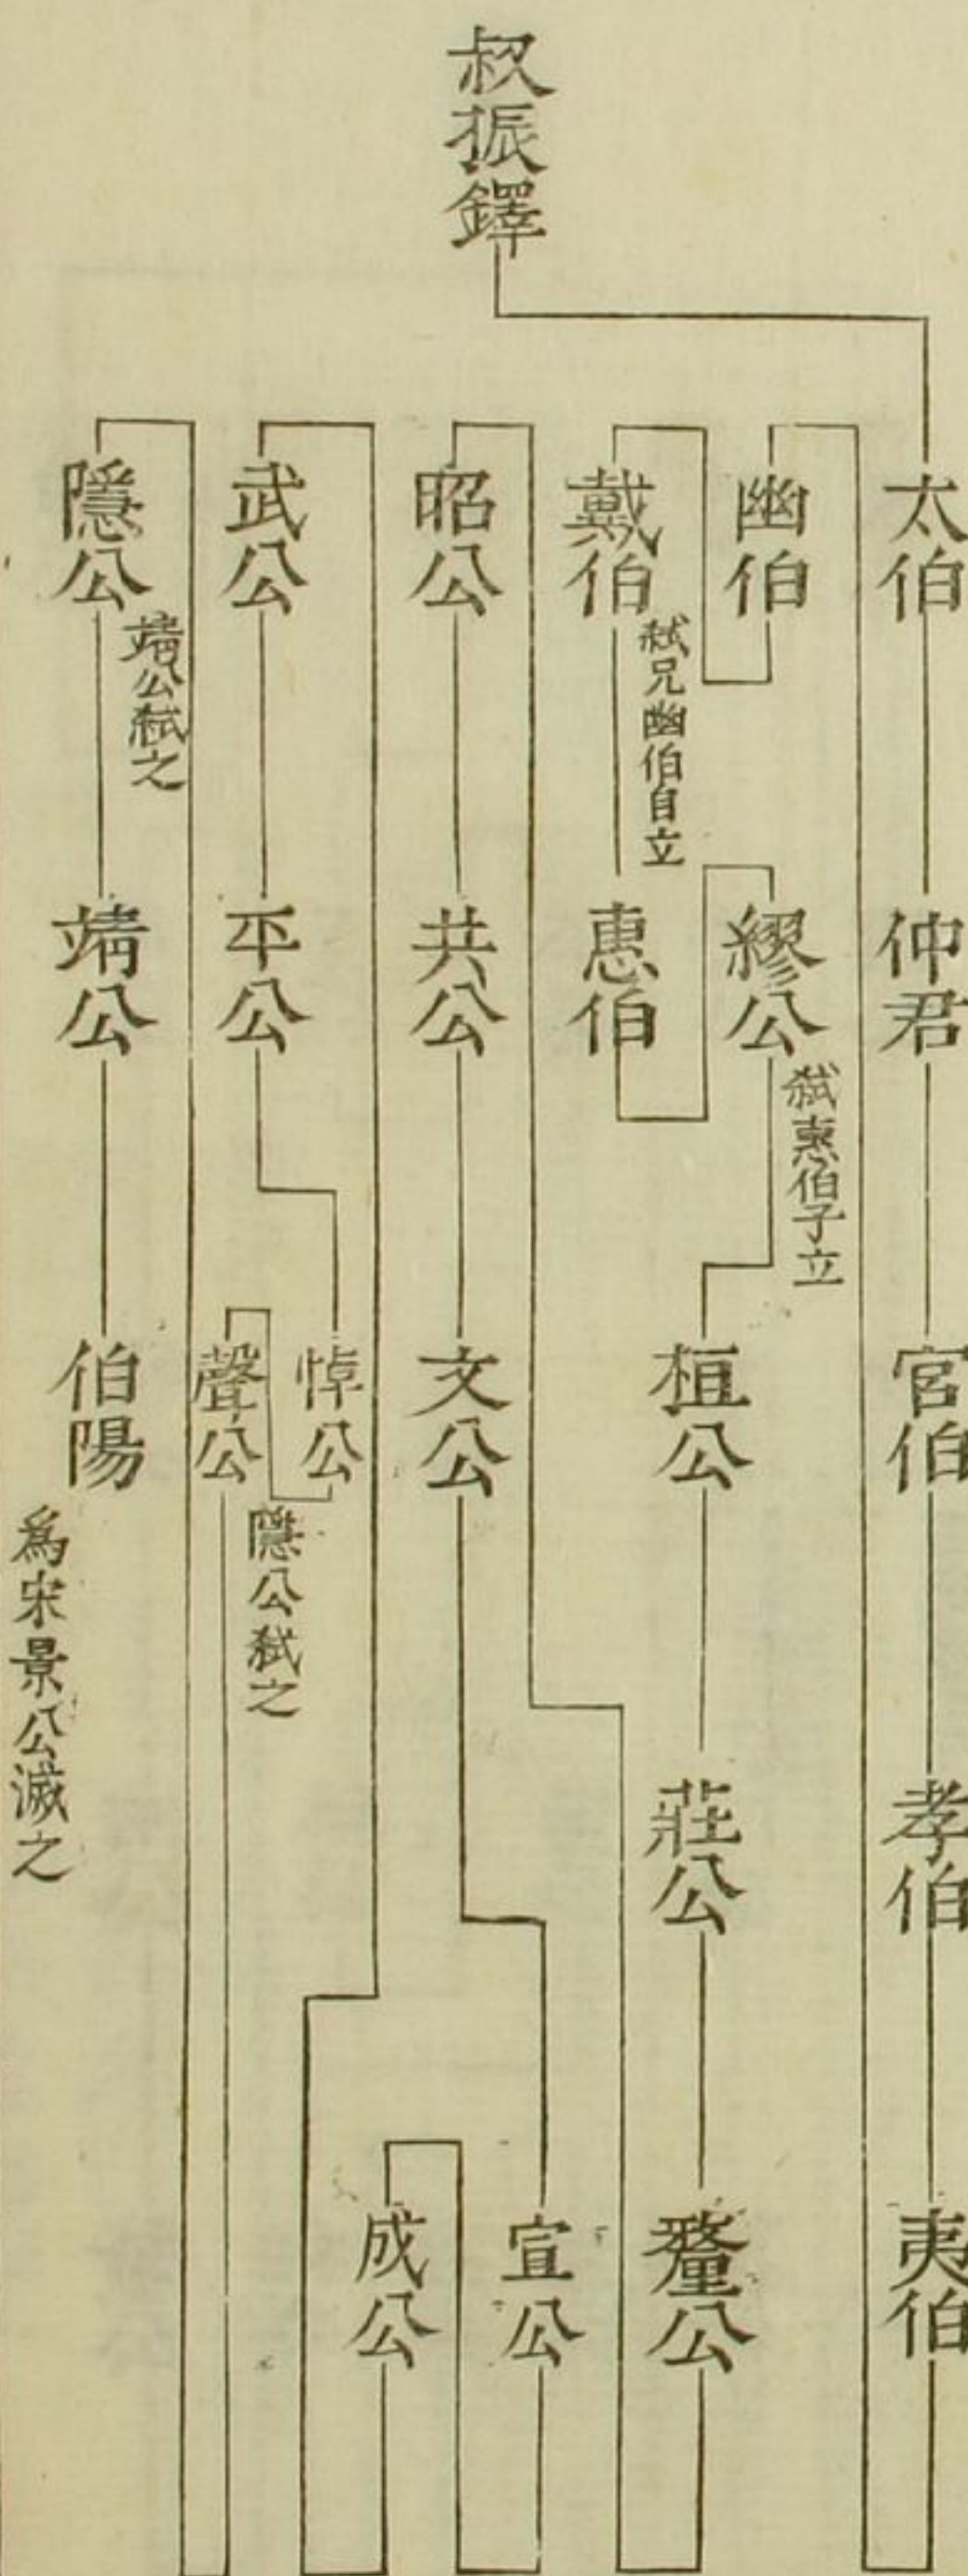 叔振鐸
太伯
仲君
宮伯
孝伯
夷伯
幽伯
戴伯
弑兄幽伯自立
惠伯
繆公
弑惠伯子立
桓公
莊公
釐公
昭公
共公
文公
宣公
成公
武公
平公
悼公
隱公弑之
聲公
隱公
靖公弑之
靖公
伯陽
為宋景公滅之